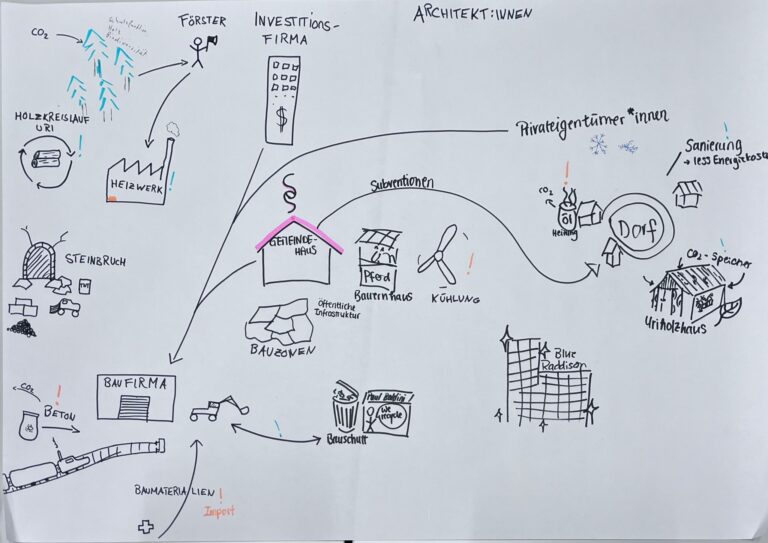 ARCHITEKT:INNEN
INVESTITIONS-
FIRMA
FÖRSTER
CO₂
$
HOLZKREISLAUF
URI
!
HEIZWERK
!
Privateigentümer*innen
Sanierung
!
→ less Energiekoste
Subventionen
CO₂
!
Öl
Heizung
Dorf
CO₂-Speicher
!
Uriholzhaus
GEMEINDE-
HAUS
Pferd
Bauernhaus
KÜHLUNG
!
STEINBRUCH
TNT
Öffentliche
Infrastruktur
BAUZONEN
Blue
Raddison
BAUFIRMA
CO₂
!
BETON
!
Bauschutt
Paul Baldini
We
recycle
BAUMATERIALIEN !
Import